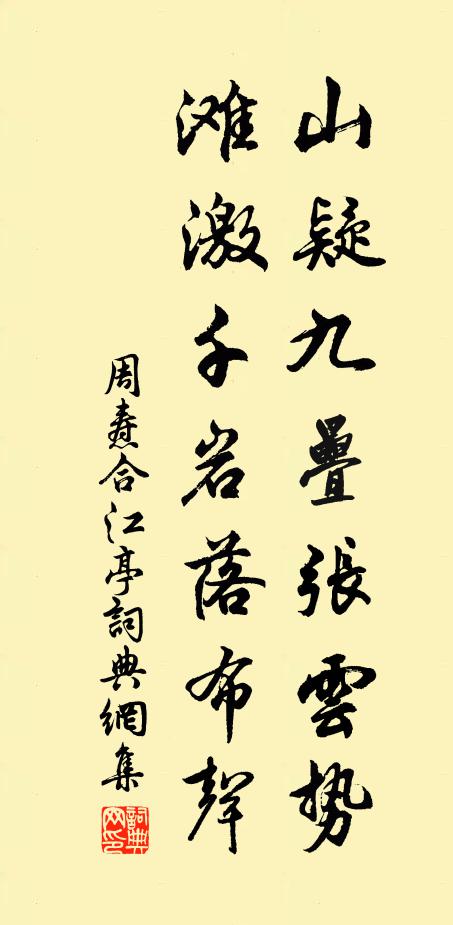 山疑九疊張雲势
滩激千岩落布聲
周焘合江亭詞典網集
詞典网印